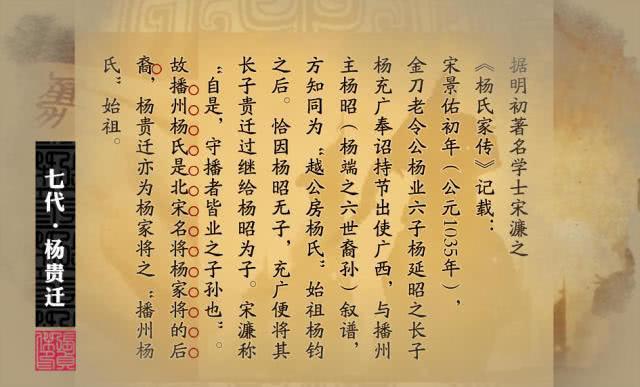 据明初著名学士宋濂之
《杨氏家传》记载：
宋景佑初年（公元1035年），
金刀老令公杨业六子杨延昭之长子
杨充广奉诏持节出使广西，与播州
主杨昭（杨端之六世裔孙）叙谱，
方知同为“越公房杨氏”始祖杨钧
之后。恰因杨昭无子，充广便将其
长子贵迁过继给杨昭为子。宋濂称
“自是，守播者皆业之子孙也”。
故播州杨氏是北宋名将杨家将的后
裔，杨贵迁亦为杨家将之“播州杨
氏”始祖。
七代·杨贵迁